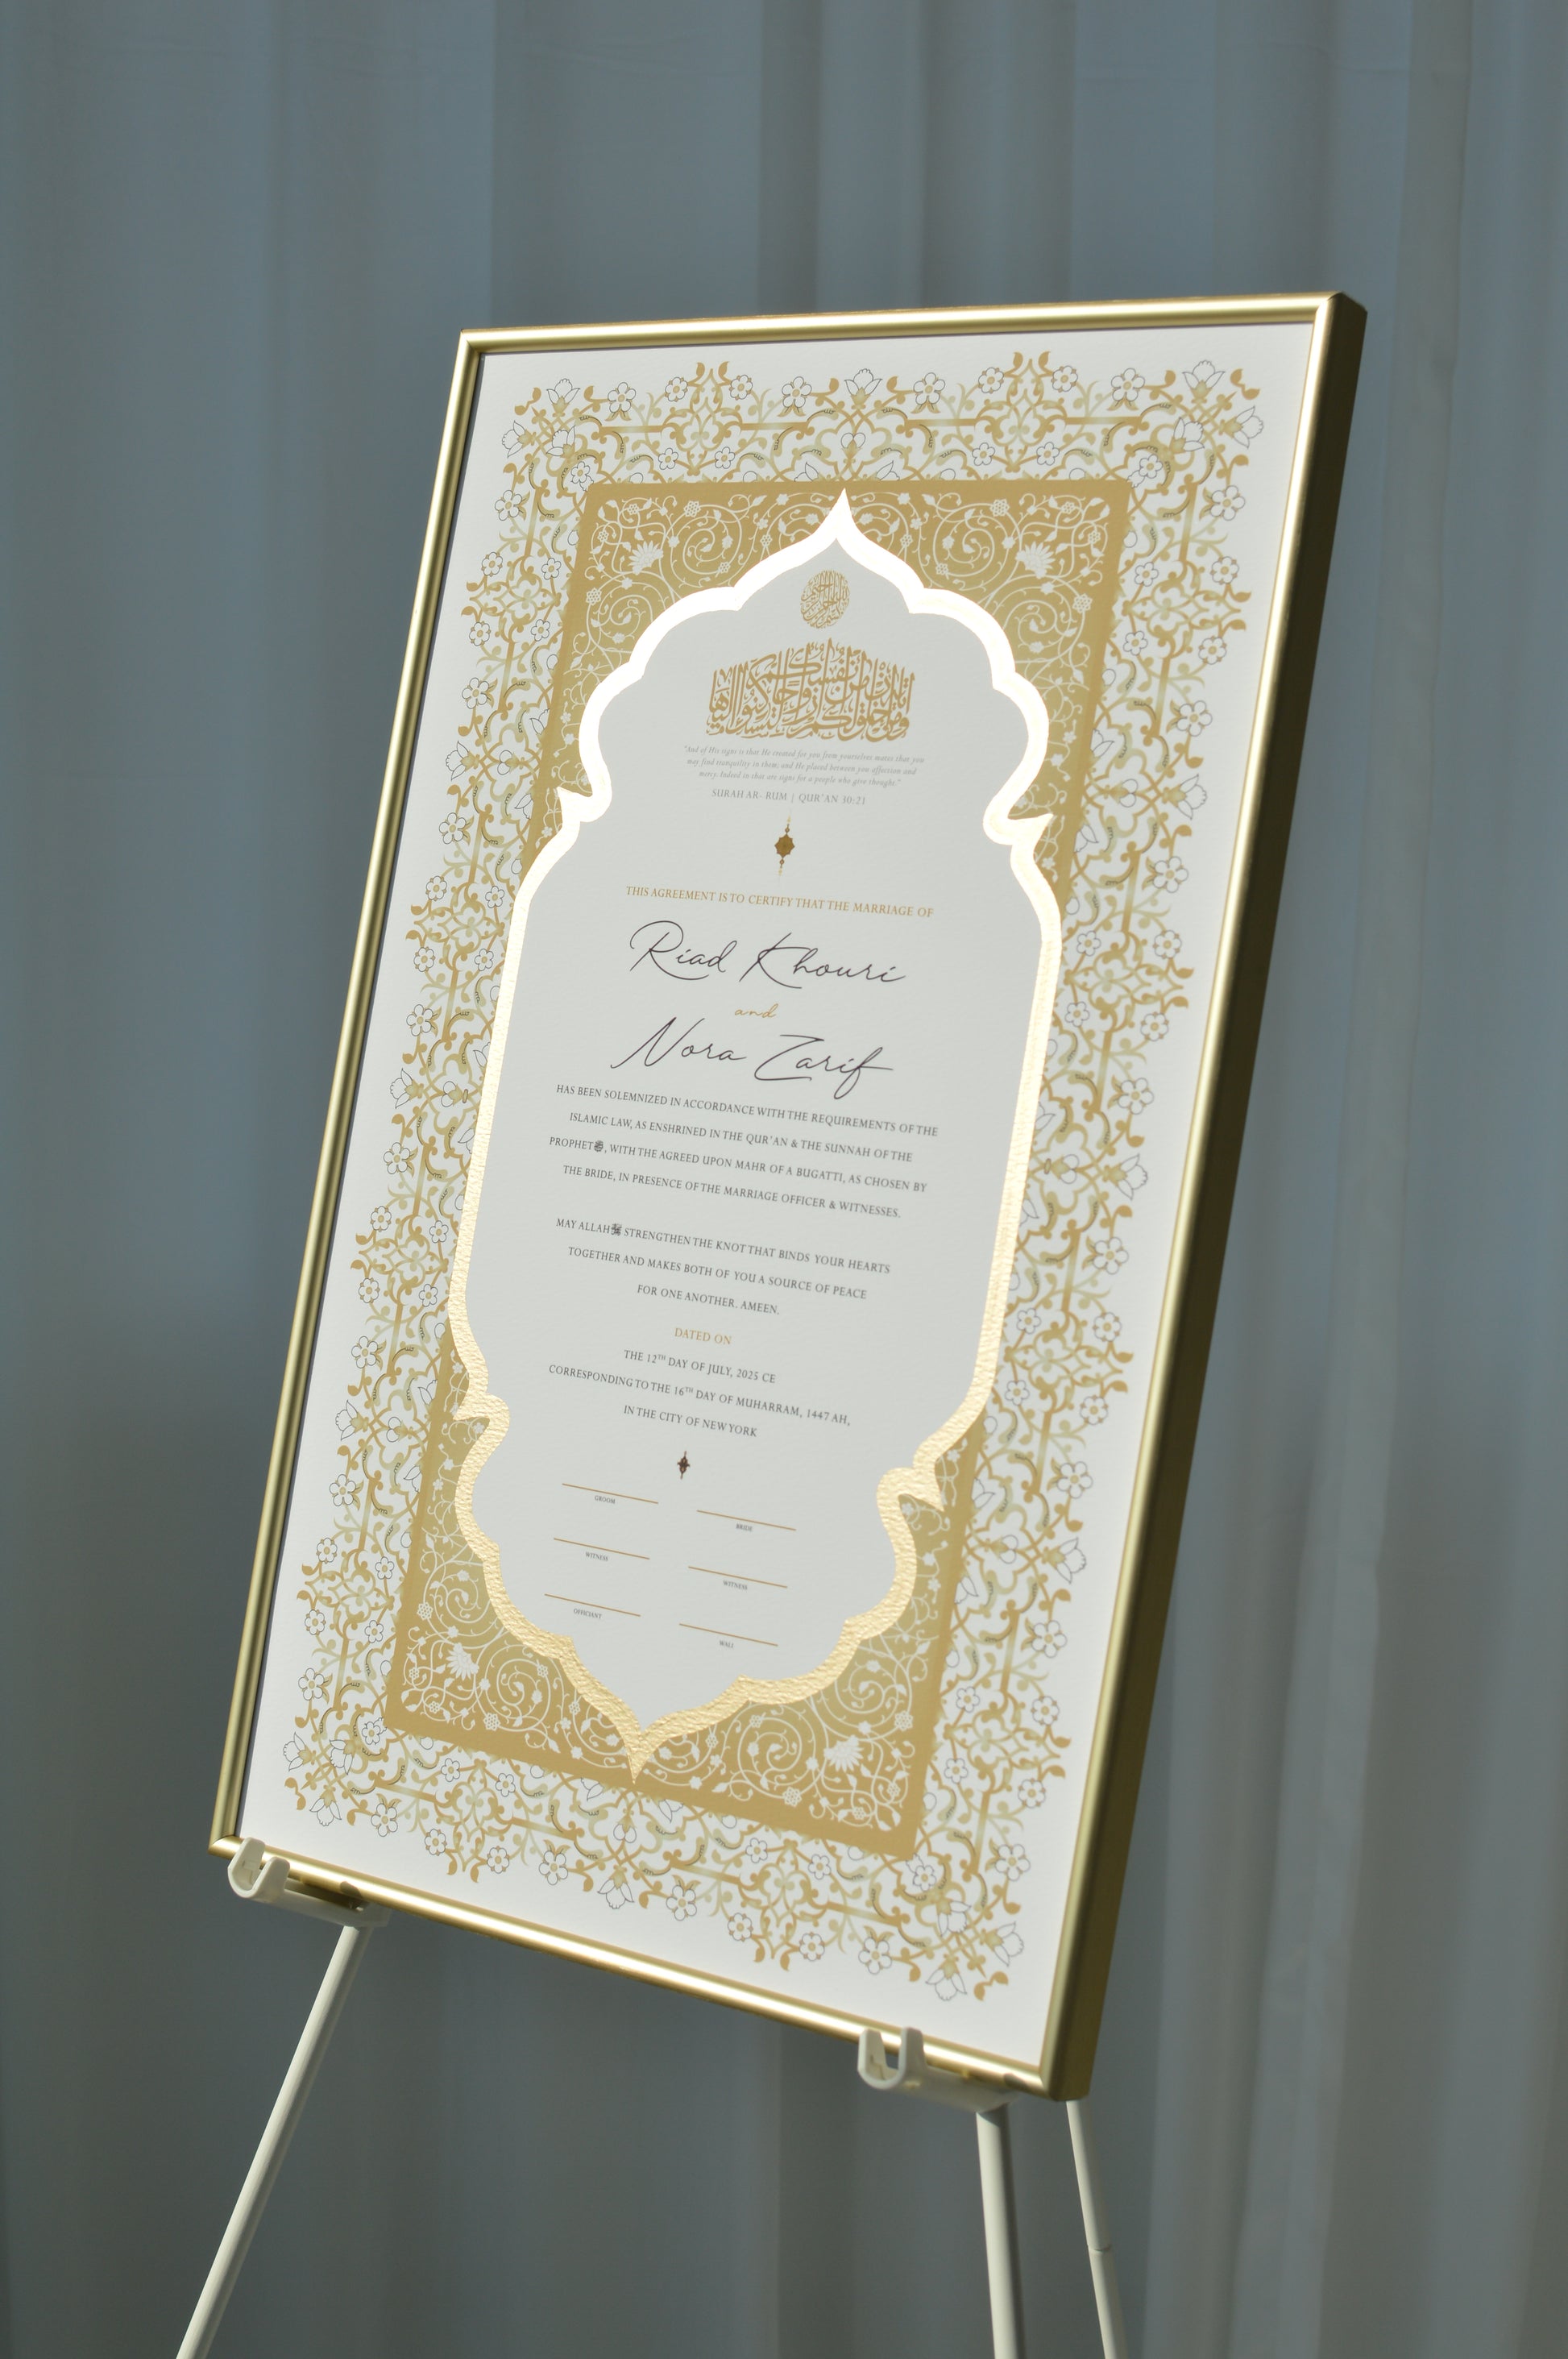 بسم الله الرحمن الرحيم
ومن آياته أن خلق لكم من أنفسكم أزواجا لتسكنوا إليها
"And of His signs is that He created for you from yourselves mates that you
may find tranquility in them; and He placed between you affection and
mercy. Indeed in that are signs for a people who give thought."
SURAH AR- RUM | QUR'AN 30:21
THIS AGREEMENT IS TO CERTIFY THAT THE MARRIAGE OF
Riad Khouri
and
Nora Zarif
HAS BEEN SOLEMNIZED IN ACCORDANCE WITH THE REQUIREMENTS OF THE
ISLAMIC LAW, AS ENSHRINED IN THE QUR'AN & THE SUNNAH OF THE
PROPHET ﷺ, WITH THE AGREED UPON MAHR OF A BUGATTI, AS CHOSEN BY
THE BRIDE, IN PRESENCE OF THE MARRIAGE OFFICER & WITNESSES.
MAY ALLAH STRENGTHEN THE KNOT THAT BINDS YOUR HEARTS
TOGETHER AND MAKES BOTH OF YOU A SOURCE OF PEACE
FOR ONE ANOTHER. AMEEN.
DATED ON
THE 12TH DAY OF JULY, 2025 CE
CORRESPONDING TO THE 16TH DAY OF MUHARRAM, 1447 AH,
IN THE CITY OF NEW YORK
GROOM
BRIDE
WITNESS
WITNESS
OFFICIANT
WALI